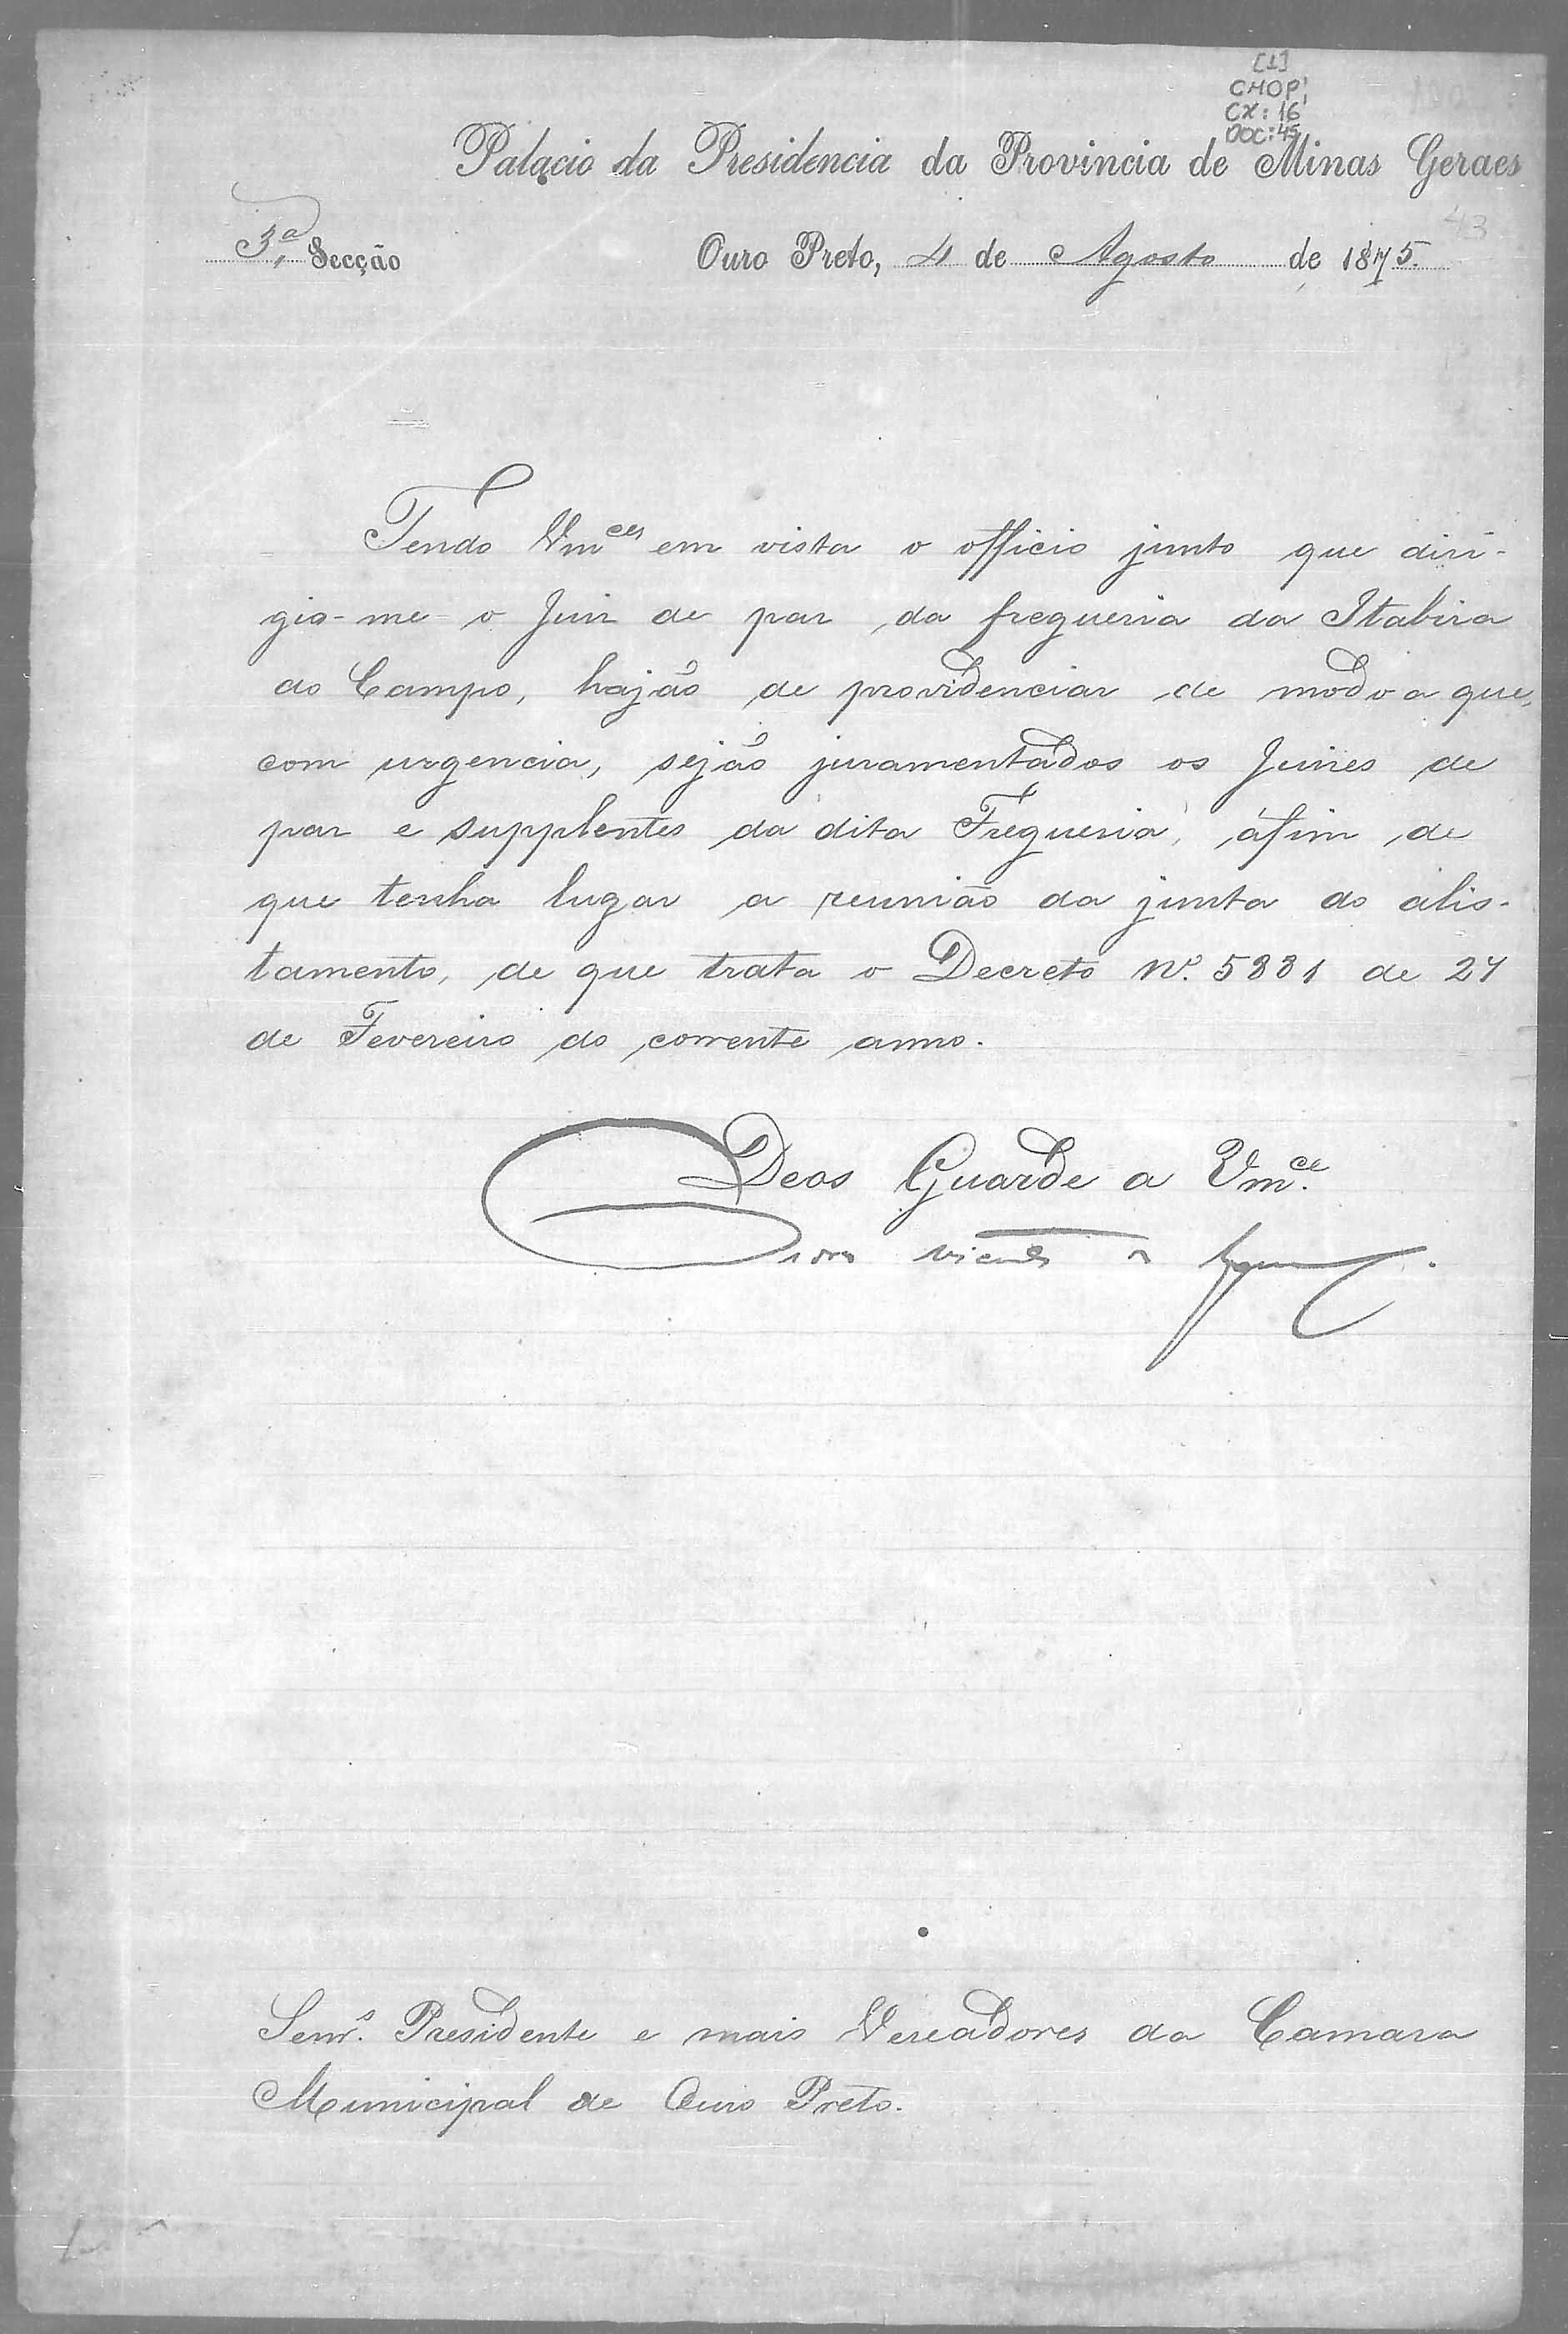 [1]
CMOP,
CX: 16
DOC: 45
Palacio da Presidencia da Provincia de Minas Geraes
43
3ª Secção
Ouro Preto, 4 de Agosto de 1875.
Tendo Vm^ces em vista o officio junto que diri-
gio-me o Juiz de paz da freguezia da Itabira
do Campo, hajão de providenciar de modo a que,
com urgencia, sejão juramentados os Juizes de
paz e supplentes da dita Freguezia, áfim de
que tenha lugar a reunião da junta do alis-
tamento, de que trata o Decreto Nº. 5881 de 27
de Fevereiro do corrente anno.
Deos Guarde a Vm^ce.
Senr^s. Presidente e mais Vereadores da Camara
Municipal de Ouro Preto.